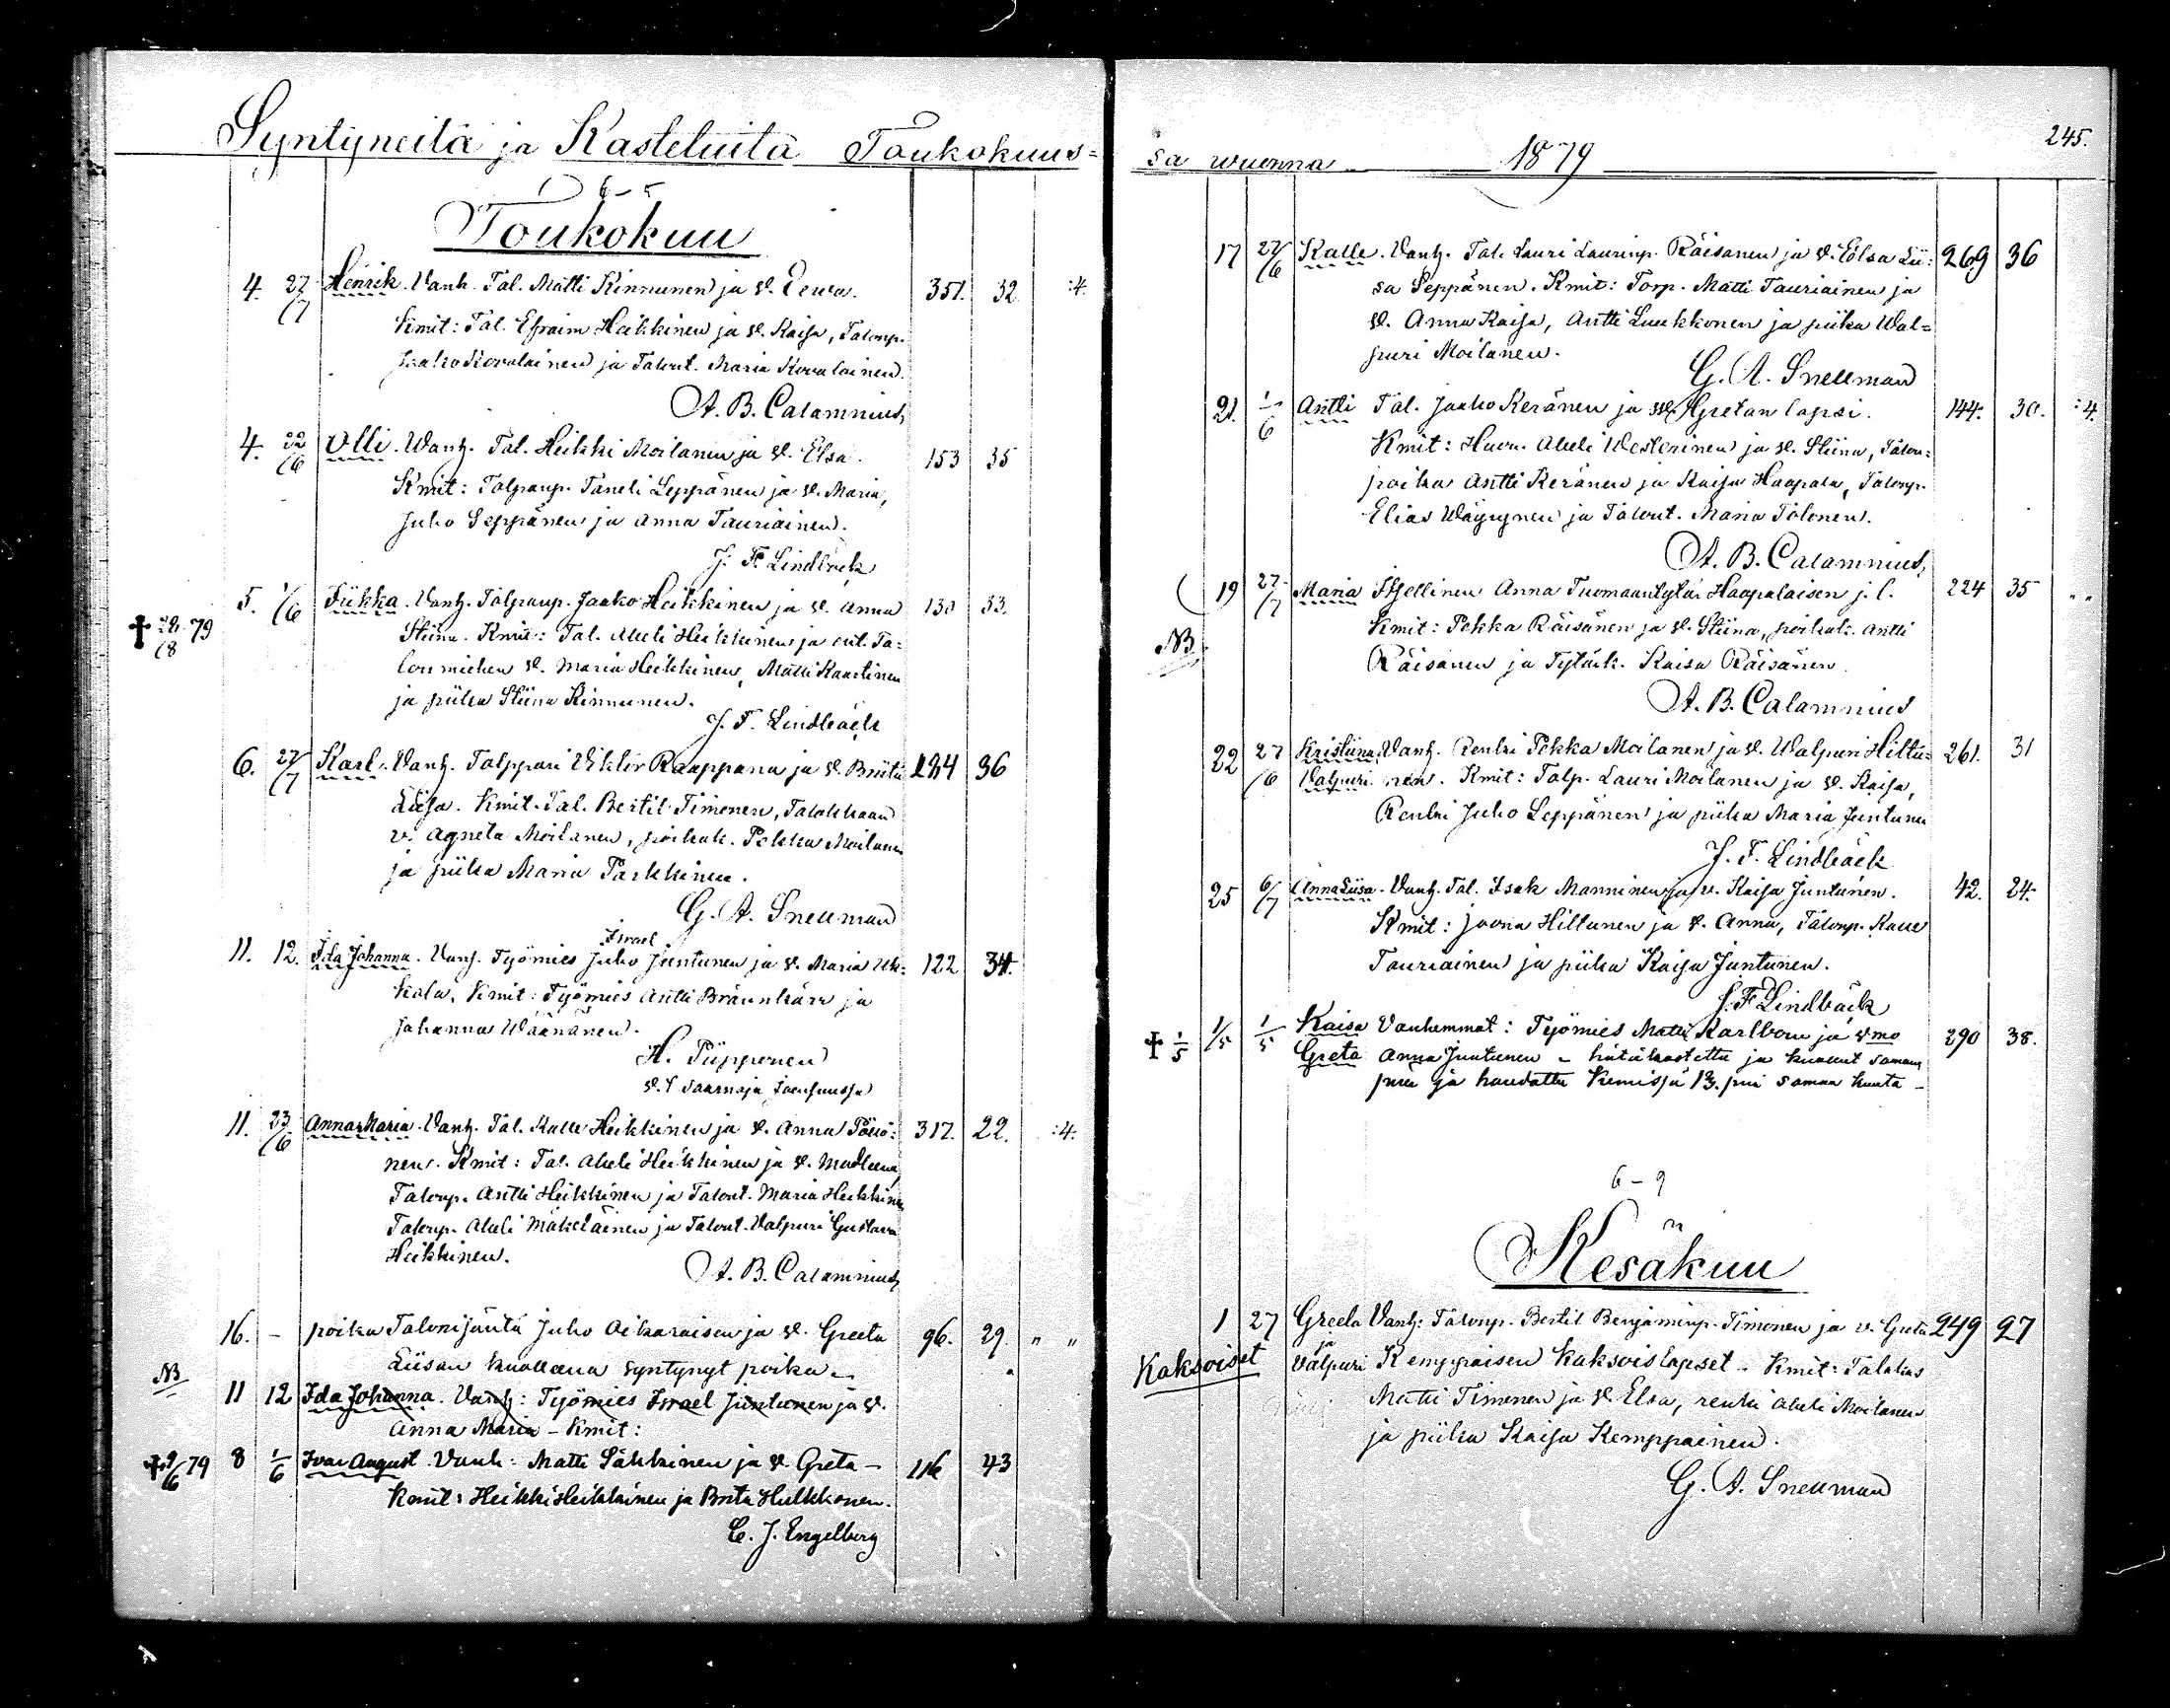 Syntyneitä ja Kasteluita Toukokuus=
6-5
Toukokuu
4. 27/7 Henrik. Vanh. Tal. Matti Kinnunen ja v. Eewa. 351. 32 :4.
Kmit: Tal. Efraim Heikkinen ja v. Kaisa, Talonp.
Jaako Kowalainen ja Talont. Maria Kowalainen.
A. B. Calamnius,
4. 22/6 Olli. Wanh. Tal. Heikki Moilanen ja v. Elsa. 153 35
Kmit: Talpanp. Taneli Leppänen ja v. Maria,
Juho Seppänen ja Anna Tauriainen.
J. F. Lindbäck
† 28/8 79 5. 1/6 Fiikka. Vanh. Talpanp. Jaako Heikkinen ja v. Anna 130 33.
Stiina. Kmit: Tal. Abeli Heikkinen ja ent. Ta=
lon miehen v. Maria Heikkinen, Matti Kaartinen
ja piika Stiina Kinnunen.
J. F. Lindbäck
6. 27/7 Karl. Vanh. Talppari Viktor Raappana ja v. Briita 184 36
Liisa. Kmit. Tal. Bertil Timonen,
v. Agneta Moilanen, poikak. Pekka Moilanen
ja piika Maria Parkkinen.
G. A. Snellman
Israel
11. 12. Ida Johanna. Vanh. Työmies Juho Juntunen ja v. Maria Uk= 122 34.
kola. Kmit: Työmies Antti Bräunkärr ja
Johanna Wäänänen.
H. Piipponen
v. t. saarnaja Joensuussa
11. 23/6 Anna Maria. Vanh. Tal. Kalle Heikkinen ja v. Anna Töllö= 317. 22. :4.
nen. Kmit: Tal. Abeli Heikkinen ja v. Madleena,
Talonp. Antti Heikkinen ja Talont. Maria Heikkinen
Talonp. Abeli Mäkeläinen ja Talont. Valpuri Gustava
Heikkinen.
A. B. Calamnius,
16. - poika Talonisäntä Juho Oikaraisen ja v. Greeta 96. 29. " "
Liisan kuolleena syntynyt poika -
NB
11 12 Ida Johanna. Vanh: Työmies Israel Juntunen ja v.
Anna Maria - Kmit:
† 9/6 79 8 1/6 Ivar August. Vanh: Matti Säkkinen ja v. Greta - 116 43
Kmit: Heikki Heikkinen ja Brita Hulkkonen.
C. J. Engelberg
245.
sa wuonna 1879
17 27/6 Kalle. Vanh. Tal. Lauri Laurinp. Räisänen ja v. Elsa Lii= 269 36
sa Seppänen. Kmit: Torp. Matti Tauriainen ja
v. Anna Kaisa, Antti Luukkonen ja piika Wal=
puri Moilanen.
G. A. Snellman
21. 1/6 Antti Tal. Jaako Keränen ja v. Gretan lapsi. 144. 30. :4.
Kmit: Huon. Abeli Westerinen ja v. Stiina, Talon=
poika Antti Keränen ja Kaisa Haapala, Talonp.
Elias Wäyrynen ja Talont. Maria Tolonen.
A. B. Calamnius,
19 27/7 Maria Itsellinen Anna Tuomaantytär Haapalaisen j. l. 224 35 " "
NB.
Kmit: Pekka Räisänen ja v. Stiina, poikak. Antti
Räisänen ja Tytärk. Kaisa Räisänen.
A. B. Calamnius
22 27/6 Kristiina Vanh. Renki Pekka Moilanen ja v. Walpuri Hiltu= 261. 31
Valpuri nen. Kmit: Talp. Lauri Moilanen ja v. Kaisa,
Renki Juho Leppänen ja piika Maria Juntunen
J. F. Lindbäck
25 6/7 Anna Liisa. Vanh. Tal. Isak Manninen ja v. Kaisa Juntunen. 42. 24.
Kmit: Joona Hiltunen ja v. Anna, Talonp. Kalle
Tauriainen ja piika Kaisa Juntunen.
J. F. Lindbäck
† 1/5 1/5 1/5 Kaisa Vanhemmat: Työmies Matti Karlbom ja vmo 290 38.
Greta Anna Juntunen - hätäkastettu ja kuollut samana
pnä ja haudattu Kemissä 13. pnä samaa kuuta -
6-9
Kesäkuu
1 27 Greeta Vanh: Talonp. Bertil Benjaminp. Timonen ja v. Greta 249 27
ja
Kaksoiset Valpuri Kemppaisen kaksoislapset - Kmit:
Matti Timonen ja v. Elsa, renki Abeli Moilanen
ja piika Kaisa Kemppainen.
G. A. Snellman